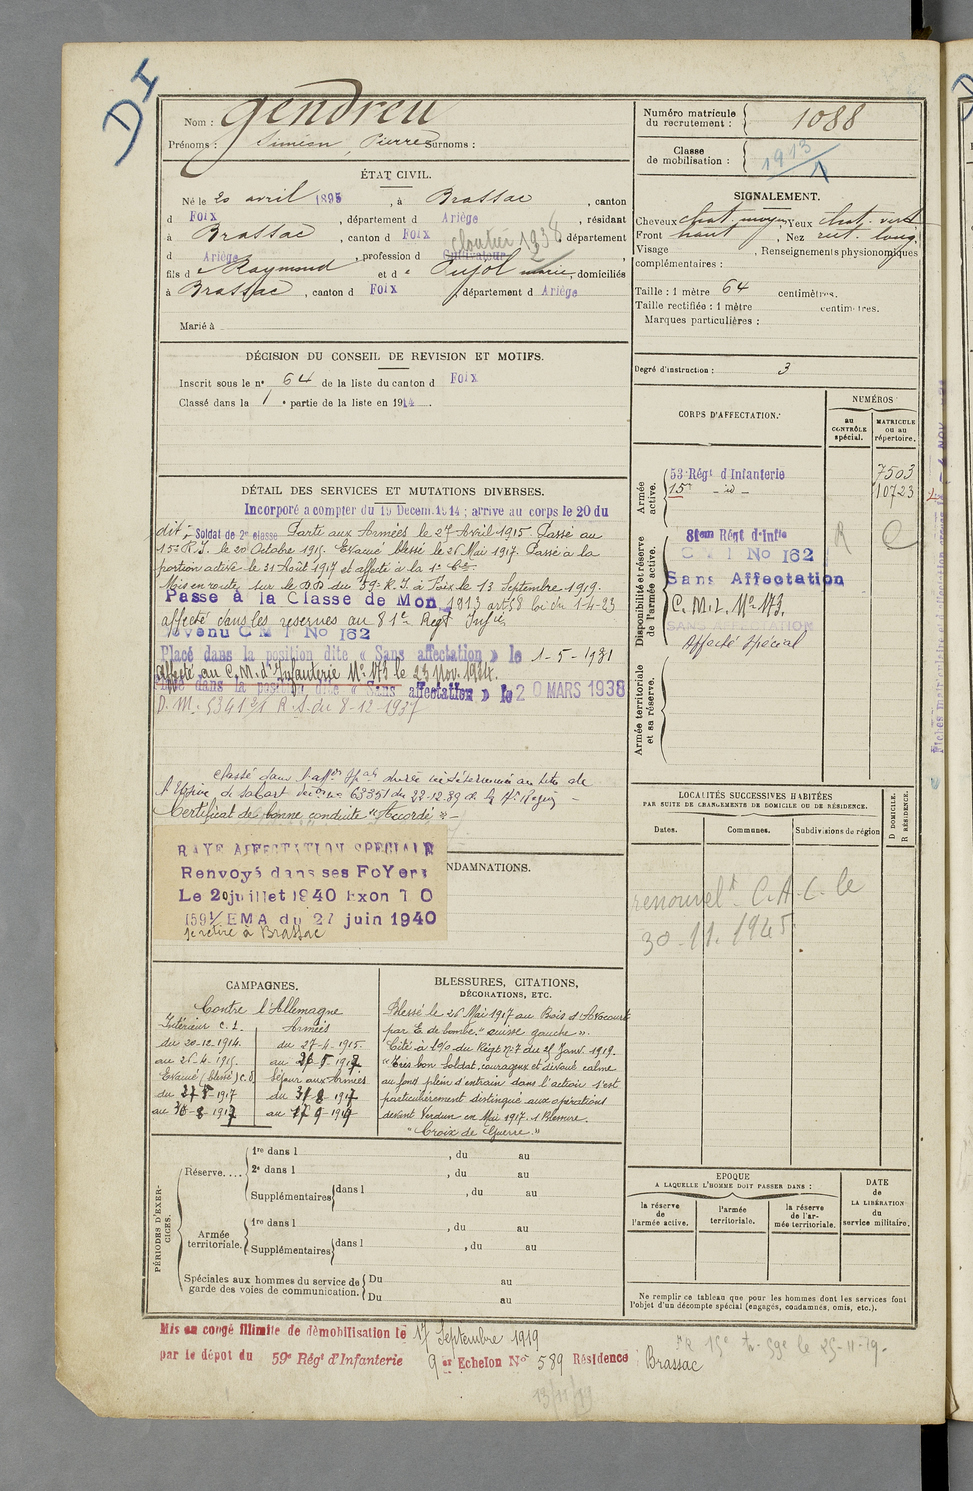 DI
Nom : Gendreu
Prénoms : Siméon, Pierre Surnoms :
Numéro matricule du recrutement : 1088
Classe de mobilisation : 1913
ÉTAT CIVIL.
Né le 20 avril 1895, à Brassac, canton
d Foix, département d Ariège, résidant
à Brassac, canton d Foix, département
d Ariège, profession d Cultivateur cloutier 1938,
fils d e Raymond et d e Pujol marie, domiciliés
à Brassac, canton d Foix, département d Ariège
Marié à
SIGNALEMENT.
Cheveux chat. moyen, Yeux chat. vert
Front haut, Nez rect. long.
Visage , Renseignements physionomiques
complémentaires :
Taille : 1 mètre 64 centimètres.
Taille rectifiée : 1 mètre centimètres.
Marques particulières :
Degré d'instruction : 3
DÉCISION DU CONSEIL DE REVISION ET MOTIFS.
Inscrit sous le n° 64 de la liste du canton d Foix
Classé dans la 1 e partie de la liste en 1914.
DÉTAIL DES SERVICES ET MUTATIONS DIVERSES.
Incorporé a compter du 19 Decem. 1914 ; arrive au corps le 20 du
dit ; Soldat de 2e classe Parti aux Armées le 27 Avril 1915. Passé au
15e R.I. le 20 Octobre 1915. Evacué blessé le 26 Mai 1917. Passé à la
portion active le 31 Août 1917 et affecté à la 1e Cie
Mis en route sur le DD du 59e R.I. à Foix le 13 Septembre 1919.
Passe à la Classe de Mon 1913 art 58 loi du 1-4-23
affecté dans les réserves au 81e Regt Infie
devenu C M I No 162
Placé dans la position dite « Sans affectation » le 1-5-1931
Affecté au C.M. d'Infanterie N° 173 le 23 Nov. 1934.
Placé dans la position dite « Sans affectation » le 20 MARS 1938
D. M. 5341 R.S. du 8-12-1937
classé dans l'affon spale durée indéterminée au titre de
l'Usine de Sabart décon no 63351 du 28-12-39 de la
Certificat de bonne conduite "Accordé" -
RAYE AFFECTATION SPECIALE
Renvoyé dans ses FoYers
Le 20 juillet 1940 Exon T O
1591/EMA du 27 juin 1940
se retire à Brassac
NDAMNATIONS.
CORPS D'AFFECTATION.
NUMÉROS
au CONTRÔLE spécial.
MATRICULE ou au répertoire.
Armée active.
53e Régt d'Infanterie 7503
15e - id - 10723
Disponibilité et réserve de l'armée active.
81em Régt d'Infie
C M I No 162
Sans Affectation
C. M. I. N° 173.
SANS AFFECTATION
Affecté Spécial
Armée territoriale et sa réserve.
LOCALITÉS SUCCESSIVES HABITÉES
PAR SUITE DE CHANGEMENTS DE DOMICILE OU DE RÉSIDENCE.
Dates. Communes. Subdivisions de région
D DOMICILE.
R RÉSIDENCE.
renouvelt C.A.C. le
30-11. 1945
CAMPAGNES.
Contre l'Allemagne
Intérieur c.s. Armées
du 20-12-1914. du 27-4-1915.
au 26-4-1915. au 26-5-1917
Evacué (blessé) c.d. Séjour aux Armées
du 27-5-1917 du 31-8-1917
au 30-8-1917 au 17-9-1919
BLESSURES, CITATIONS,
DÉCORATIONS, ETC.
Blessé le 26 Mai 1917 au Bois d'Avocourt
par E. de bombe. "cuisse gauche".
Cité à l'O. du Régt n° 7 du 25 Janv. 1919.
"Très bon Soldat, courageux et dévoué calme
au fond plein d'entrain dans l'action s'est
particulièrement distingué aux opérations
devant Verdun en Mai 1917. 1 Blessure.
"Croix de Guerre."
PÉRIODES D'EXERCICES.
Réserve.... 1re dans l , du au
2e dans l , du au
Supplémentaires dans l , du au
Armée territoriale. 1re dans l , du au
Supplémentaires dans l , du au
Spéciales aux hommes du service de garde des voies de communication. Du au
Du au
EPOQUE
A LAQUELLE L'HOMME DOIT PASSER DANS :
la réserve de l'armée active.
l'armée territoriale.
la réserve de l'armée territoriale.
DATE de LA LIBÉRATION du service militaire.
Ne remplir ce tableau que pour les hommes dont les services font
l'objet d'un décompte spécial (engagés, condamnés, omis, etc.).
Mis en congé illimité de démobilisation le 17 Septembre 1919
par le dépot du 59e Régt d'Infanterie 9 er Echelon No 589 Résidence : Brassac